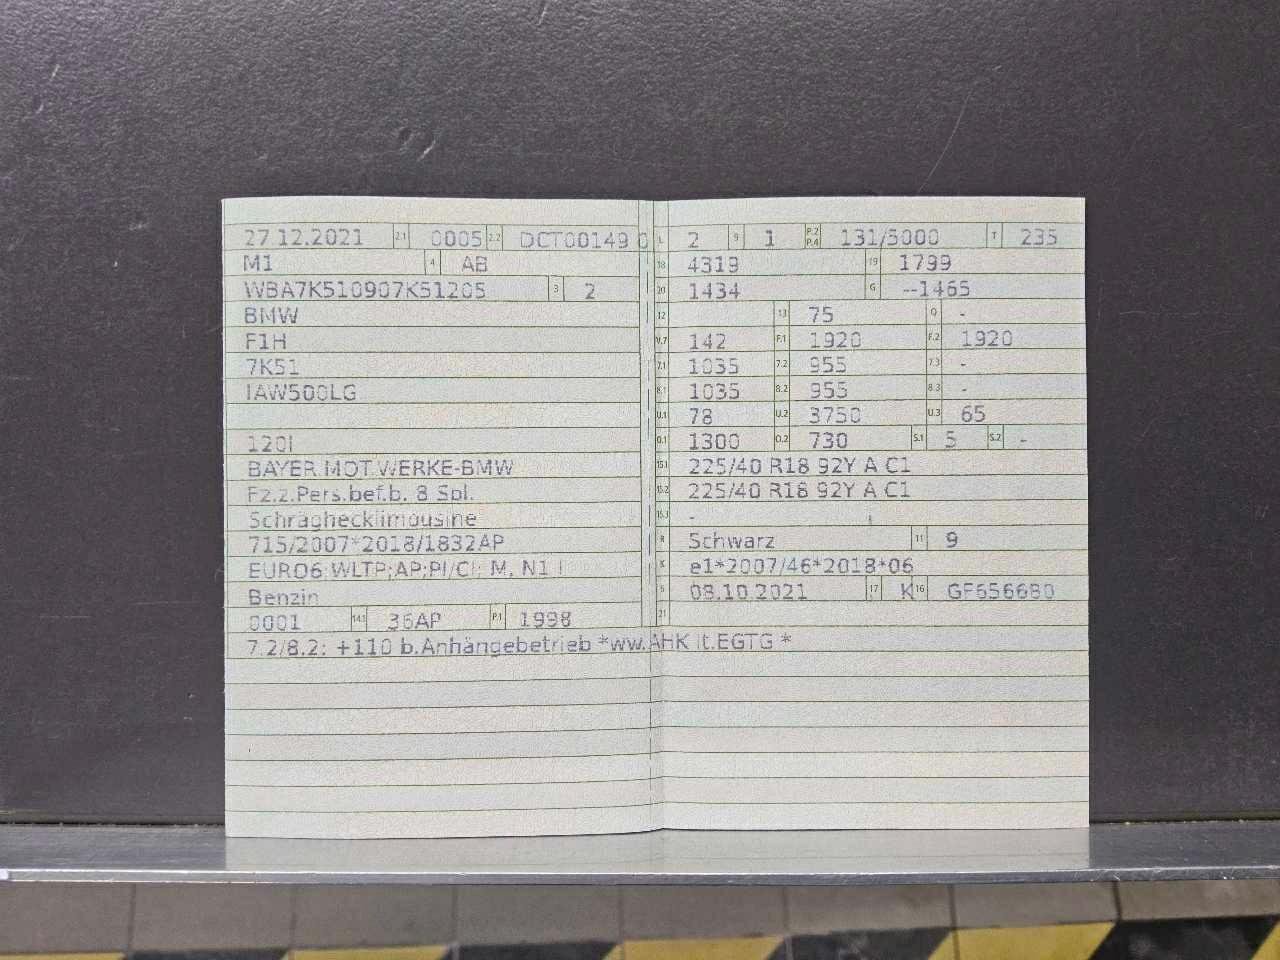 27.12.2021 2.1 0005 2.2 DCT00149 0
M1 4 AB
WBA7K510907K51205 3 2
BMW
F1H
7K51
IAW500LG
120I
BAYER.MOT.WERKE-BMW
Fz.z.Pers.bef.b. 8 Spl.
Schräghecklimousine
715/2007*2018/1832AP
EURO6;WLTP;AP;PI/CI; M, N1 I
Benzin
0001 14.1 36AP P.1 1998
7.2/8.2: +110 b.Anhängebetrieb *ww.AHK lt.EGTG *
L 2 9 1 P.2 P.4 131/5000 T 235
18 4319 19 1799
20 1434 G --1465
12 13 75 Q -
V.7 142 F.1 1920 F.2 1920
7.1 1035 7.2 955 7.3 -
8.1 1035 8.2 955 8.3 -
U.1 78 U.2 3750 U.3 65
O.1 1300 O.2 730 S.1 5 S.2 -
15.1 225/40 R18 92Y A C1
15.2 225/40 R18 92Y A C1
15.3 -
R Schwarz 11 9
K e1*2007/46*2018*06
6 08.10.2021 17 K 16 GF656680
21